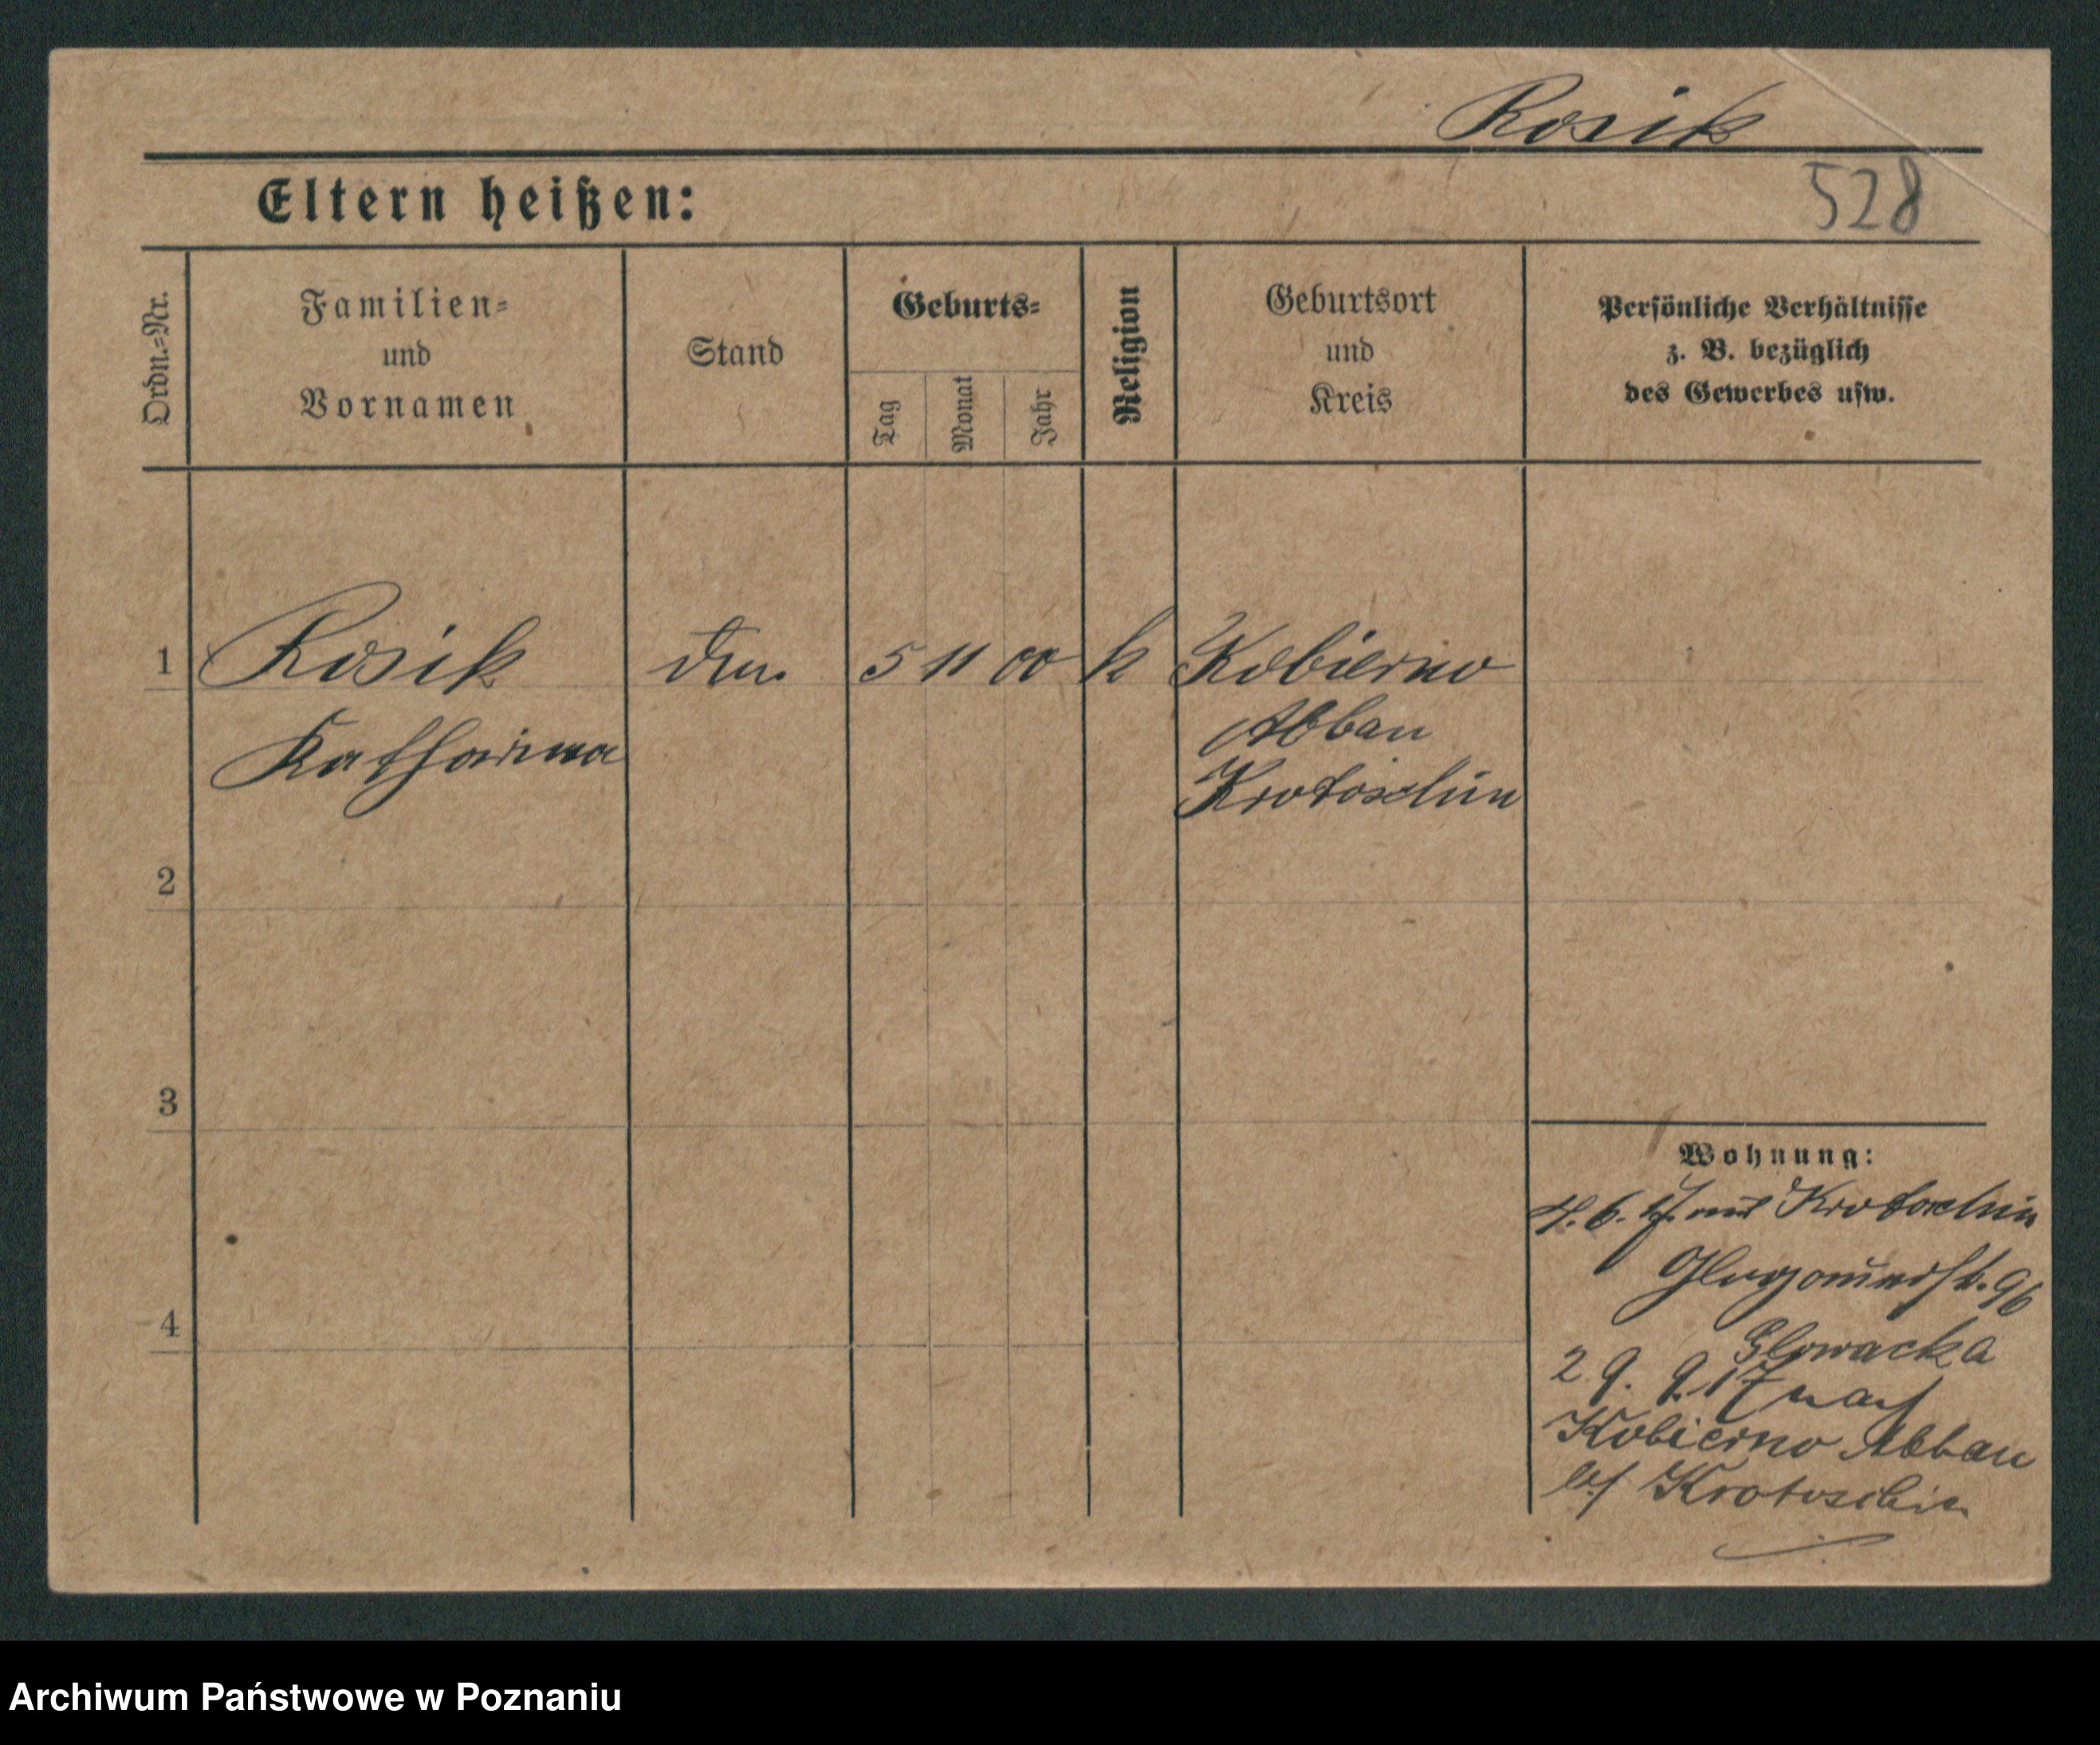 Rosik
528
Eltern heißen:
Ordn.-Nr.
Familien-
und
Vornamen
Stand
Geburts-
Tag
Monat
Jahr
Religion
Geburtsort
und
Kreis
Persönliche Verhältnisse
z. B. bezüglich
des Gewerbes usw.
1 Rosik 5 11 00 k Kobierno
Katharina Abbau
Krotoschin
2
3
4
Wohnung:
4. 6. 17. aus Krotoschin
96
Glowacka
29. 9. 17 nach
Kobierno Abbau
Krotoschin
Archiwum Państwowe w Poznaniu